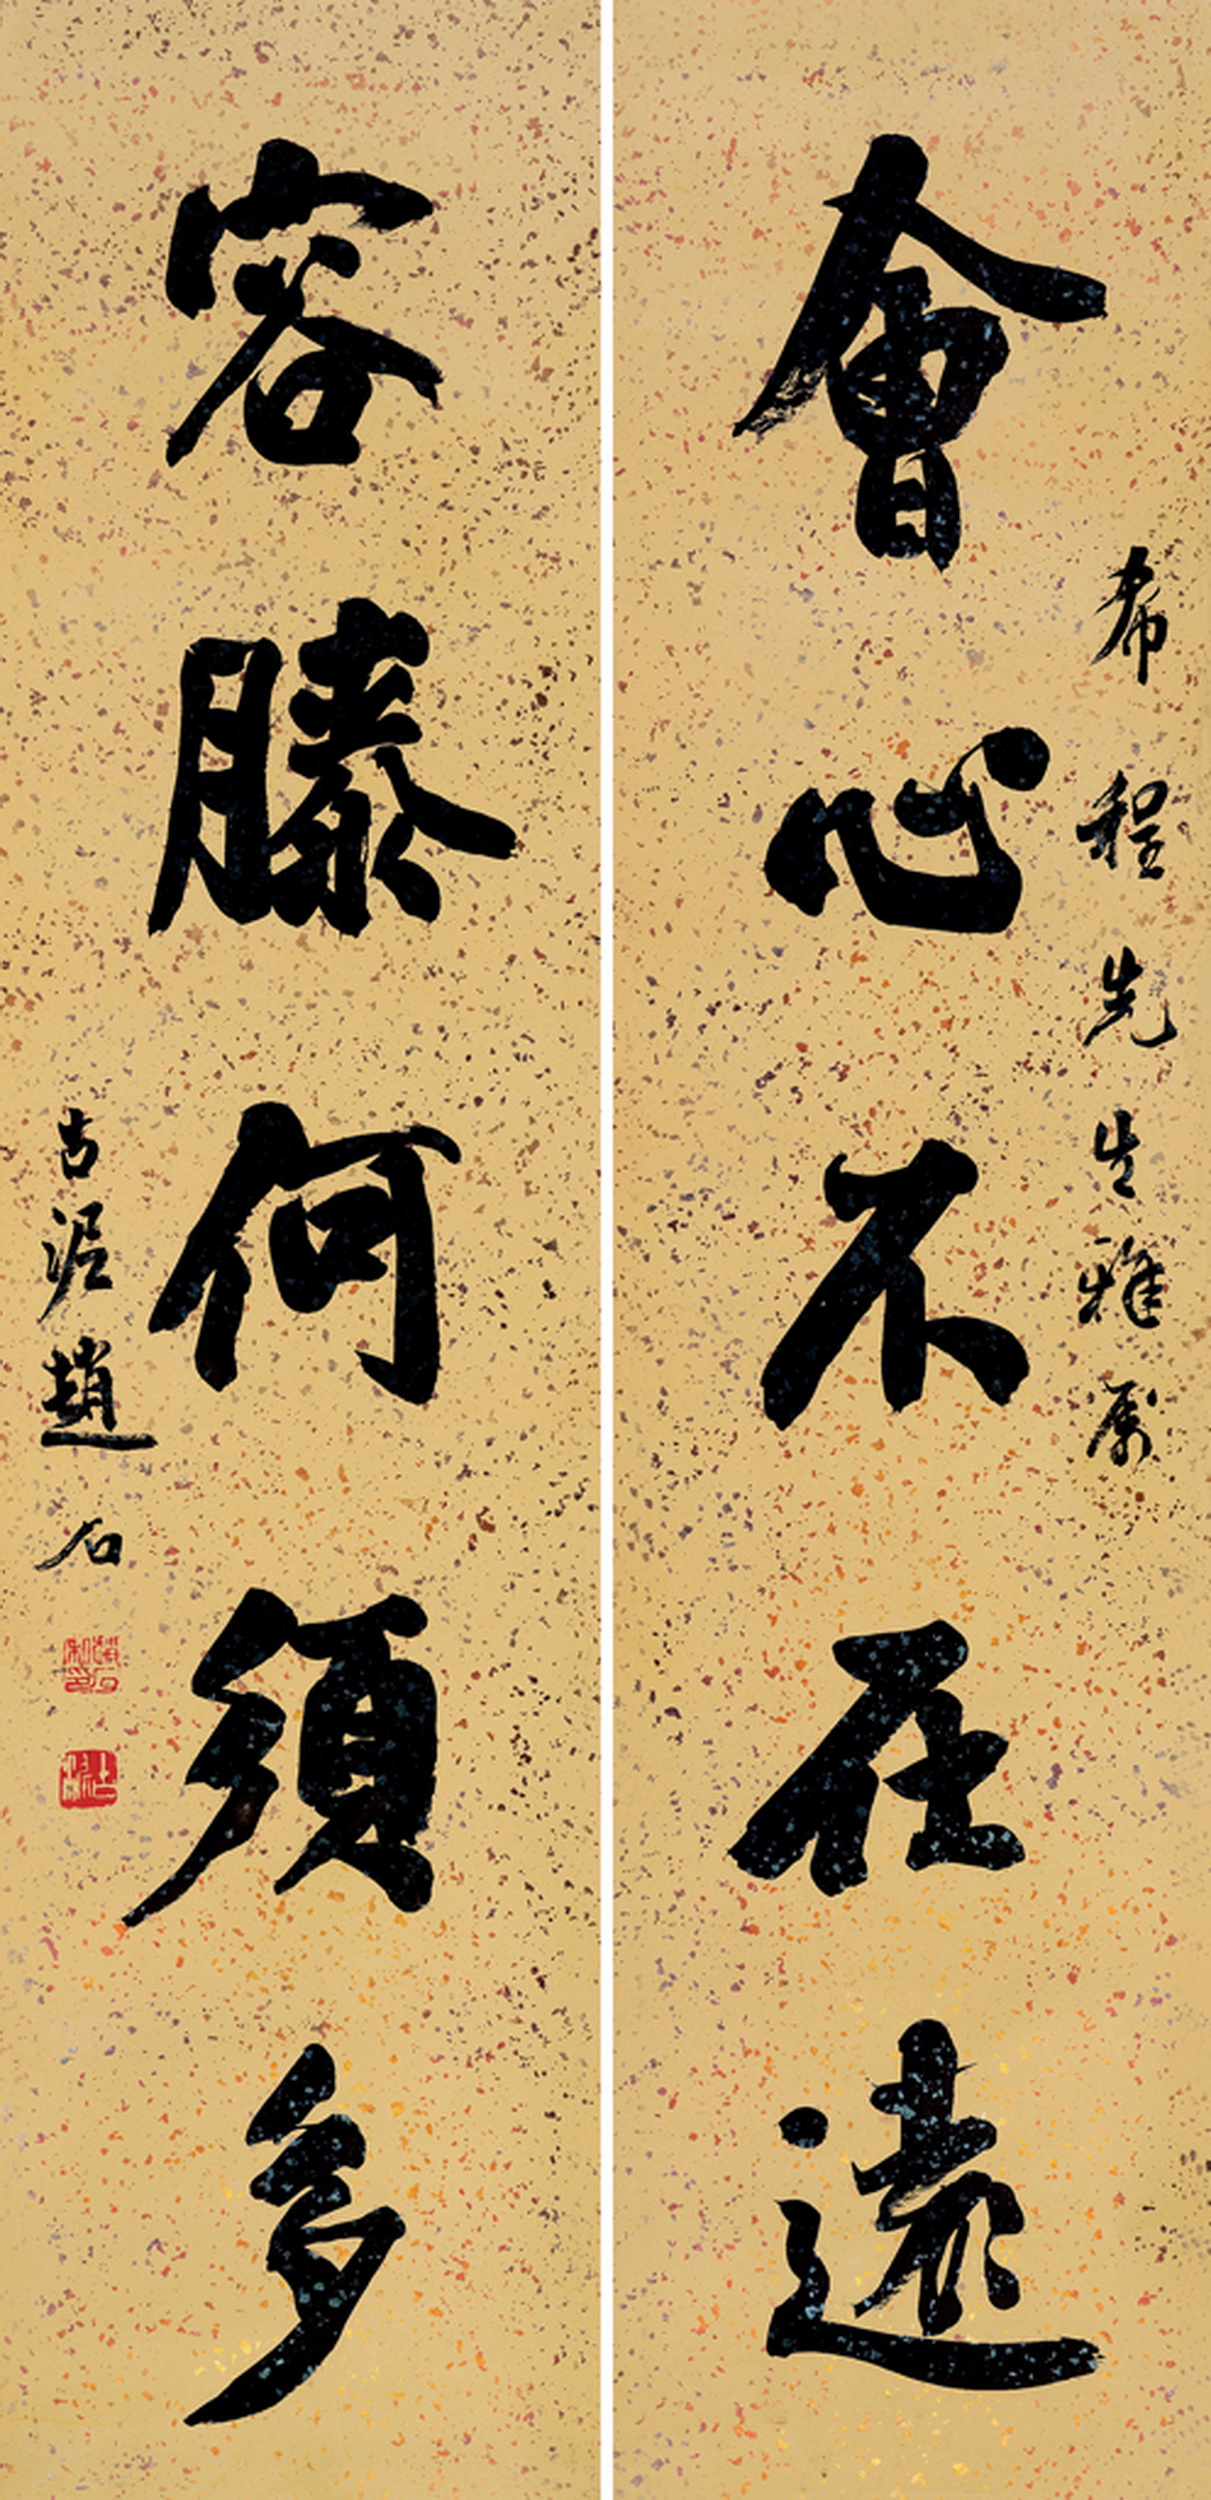 希程先生雅属
會心不在遠
容膝何須多
古泥趙石